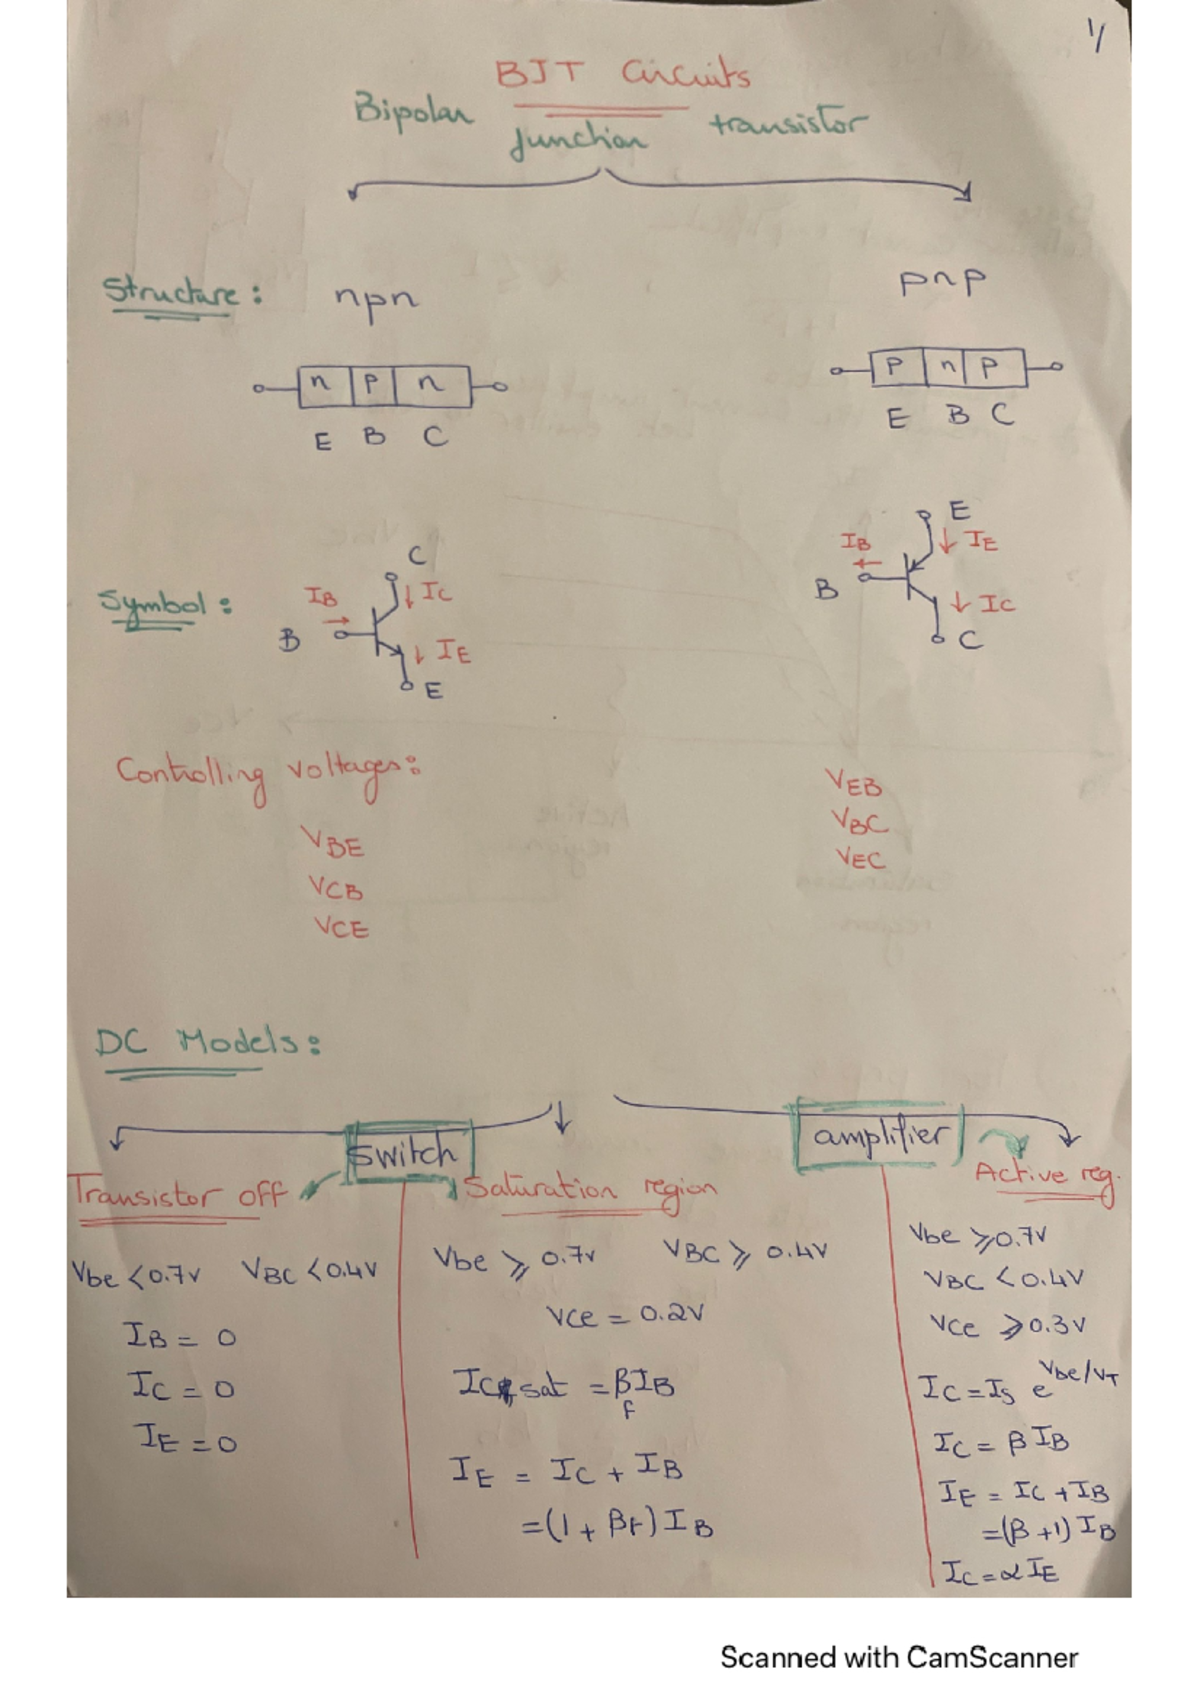 1/
BJT Circuits
Bipolar junction transistor
Structure: npn pnp
n p n
E B C
p n p
E B C
Symbol:
C
IB IC
B
IE
E
E
IB IE
B
IC
C
Controlling voltages:
VBE
VCB
VCE
VEB
VBC
VEC
DC Models:
switch
amplifier
Transistor off
Vbe < 0.7v VBC < 0.4v
IB = 0
IC = 0
IE = 0
Saturation region
Vbe ⩾ 0.7v VBC ⩾ 0.4v
Vce = 0.2v
IC sat = βf IB
IE = IC + IB
= (1 + βf) IB
Active reg.
Vbe ⩾ 0.7v
VBC < 0.4v
Vce ⩾ 0.3v
IC = IS e^Vbe/VT
IC = β IB
IE = IC + IB
= (β + 1) IB
IC = α IE
Scanned with CamScanner